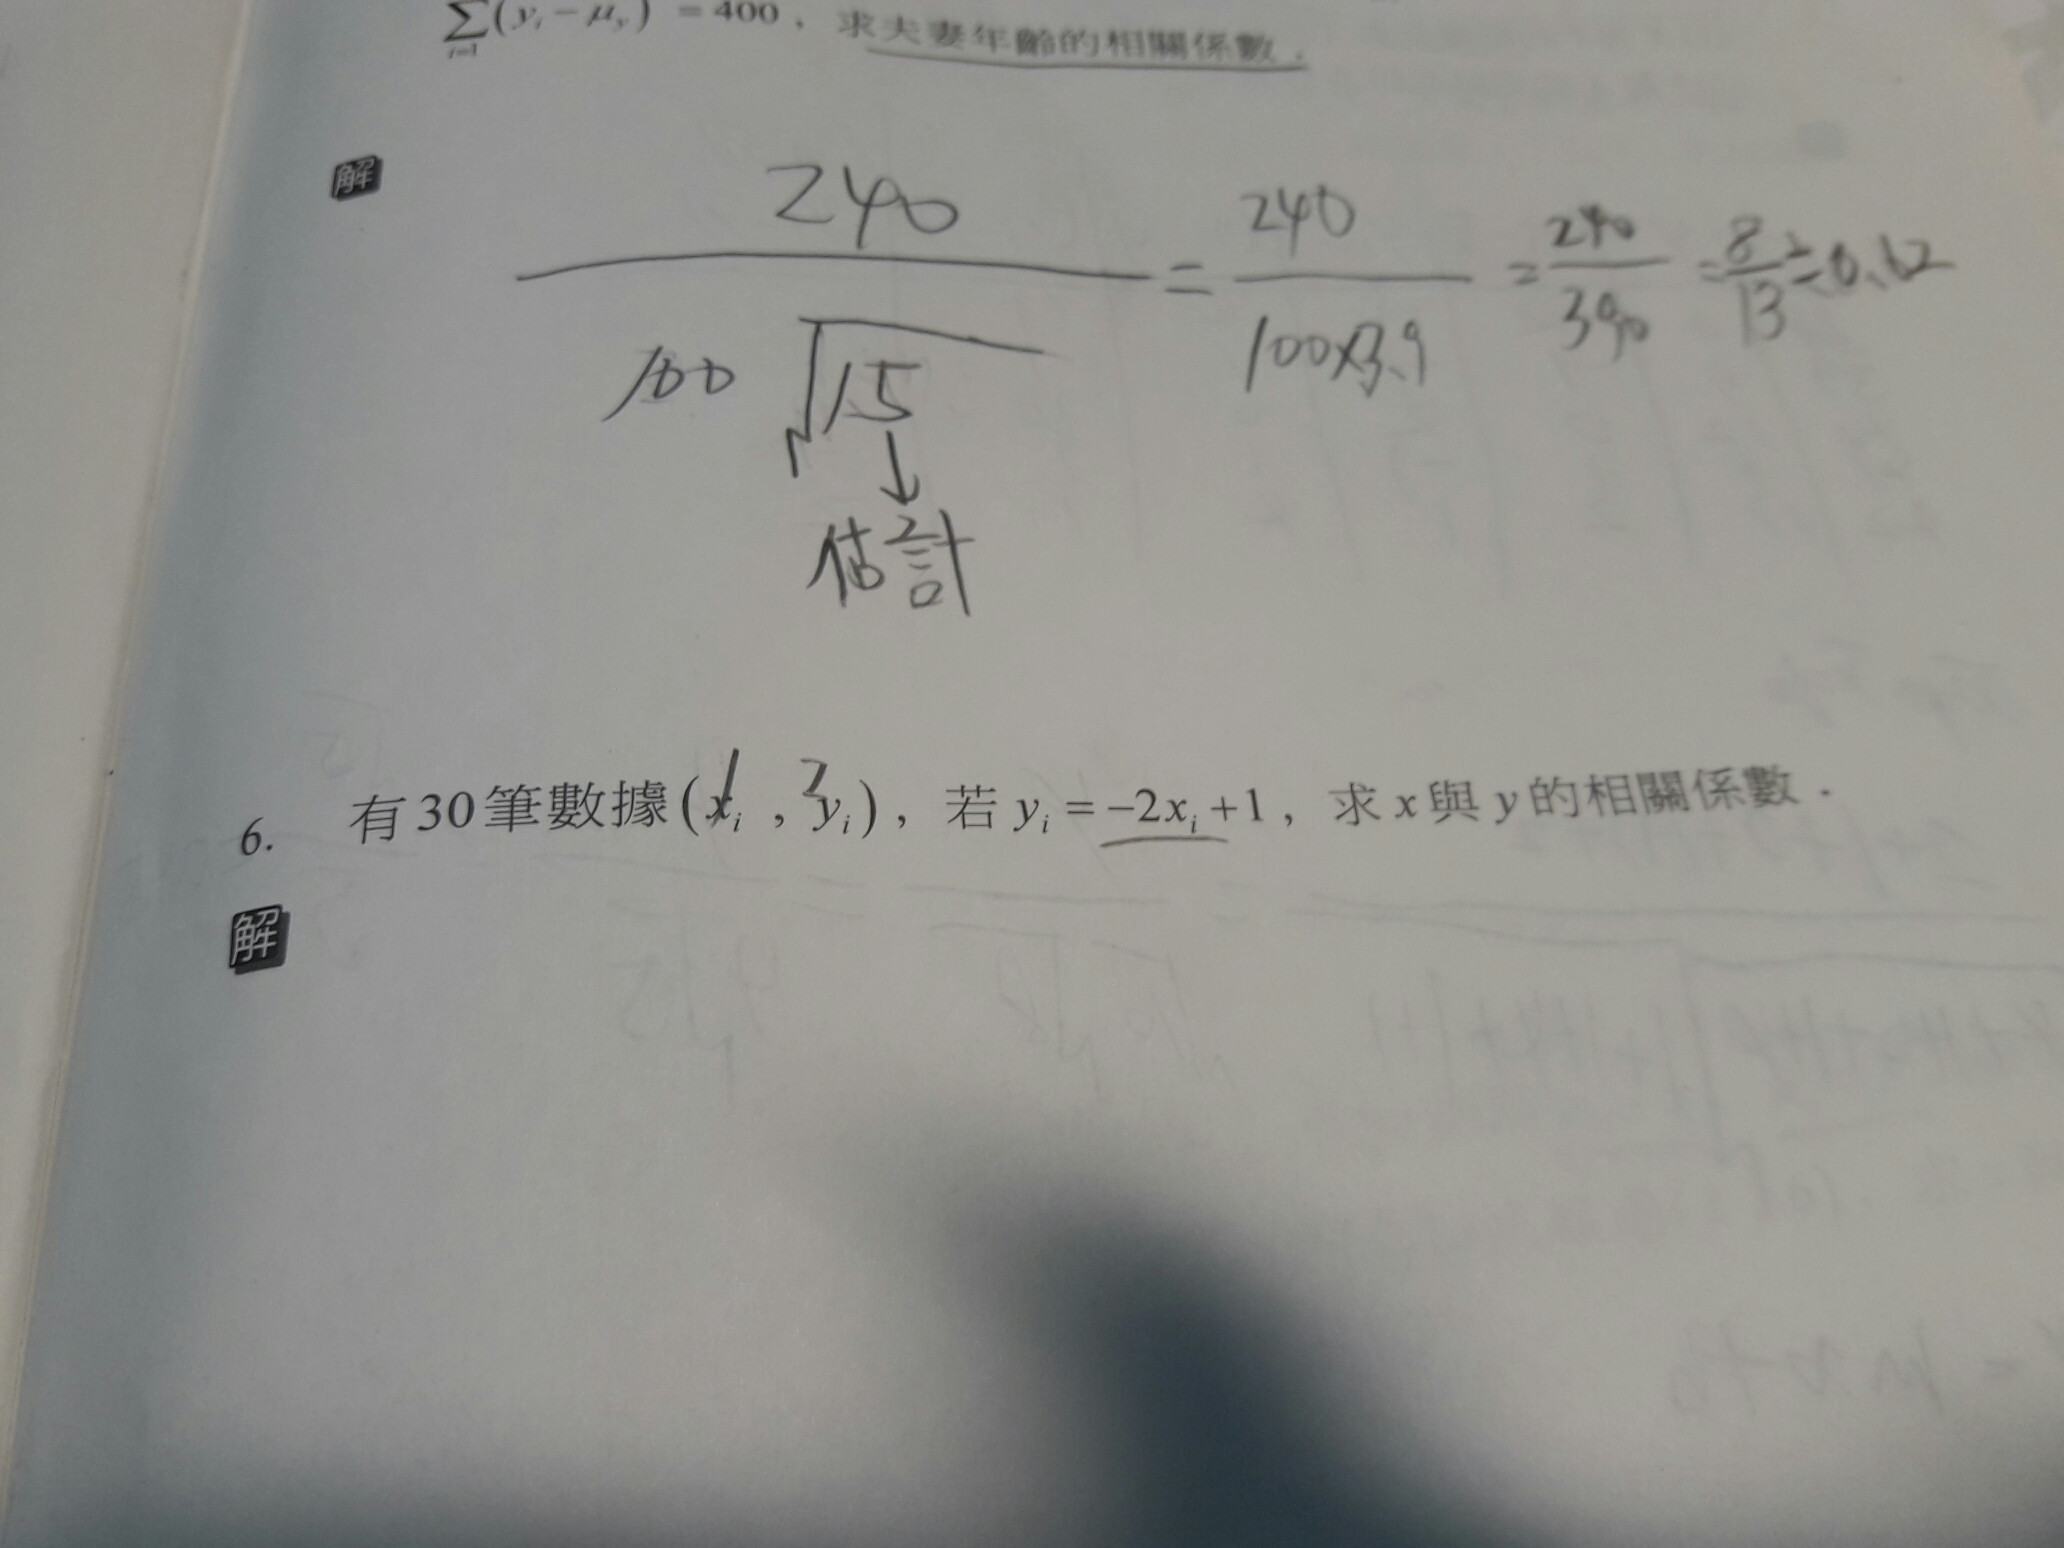 ∑(yᵢ − μᵧ) = 400，求夫妻年齡的相關係數．
i=1
解
240 / 100√15 = 240 / 100×3.9 = 240 / 390 = 8/13 ≒ 0.62
↓
估計
1 , 3
6. 有30筆數據(xᵢ , yᵢ)，若 yᵢ = −2xᵢ+1，求 x 與 y 的相關係數．
解